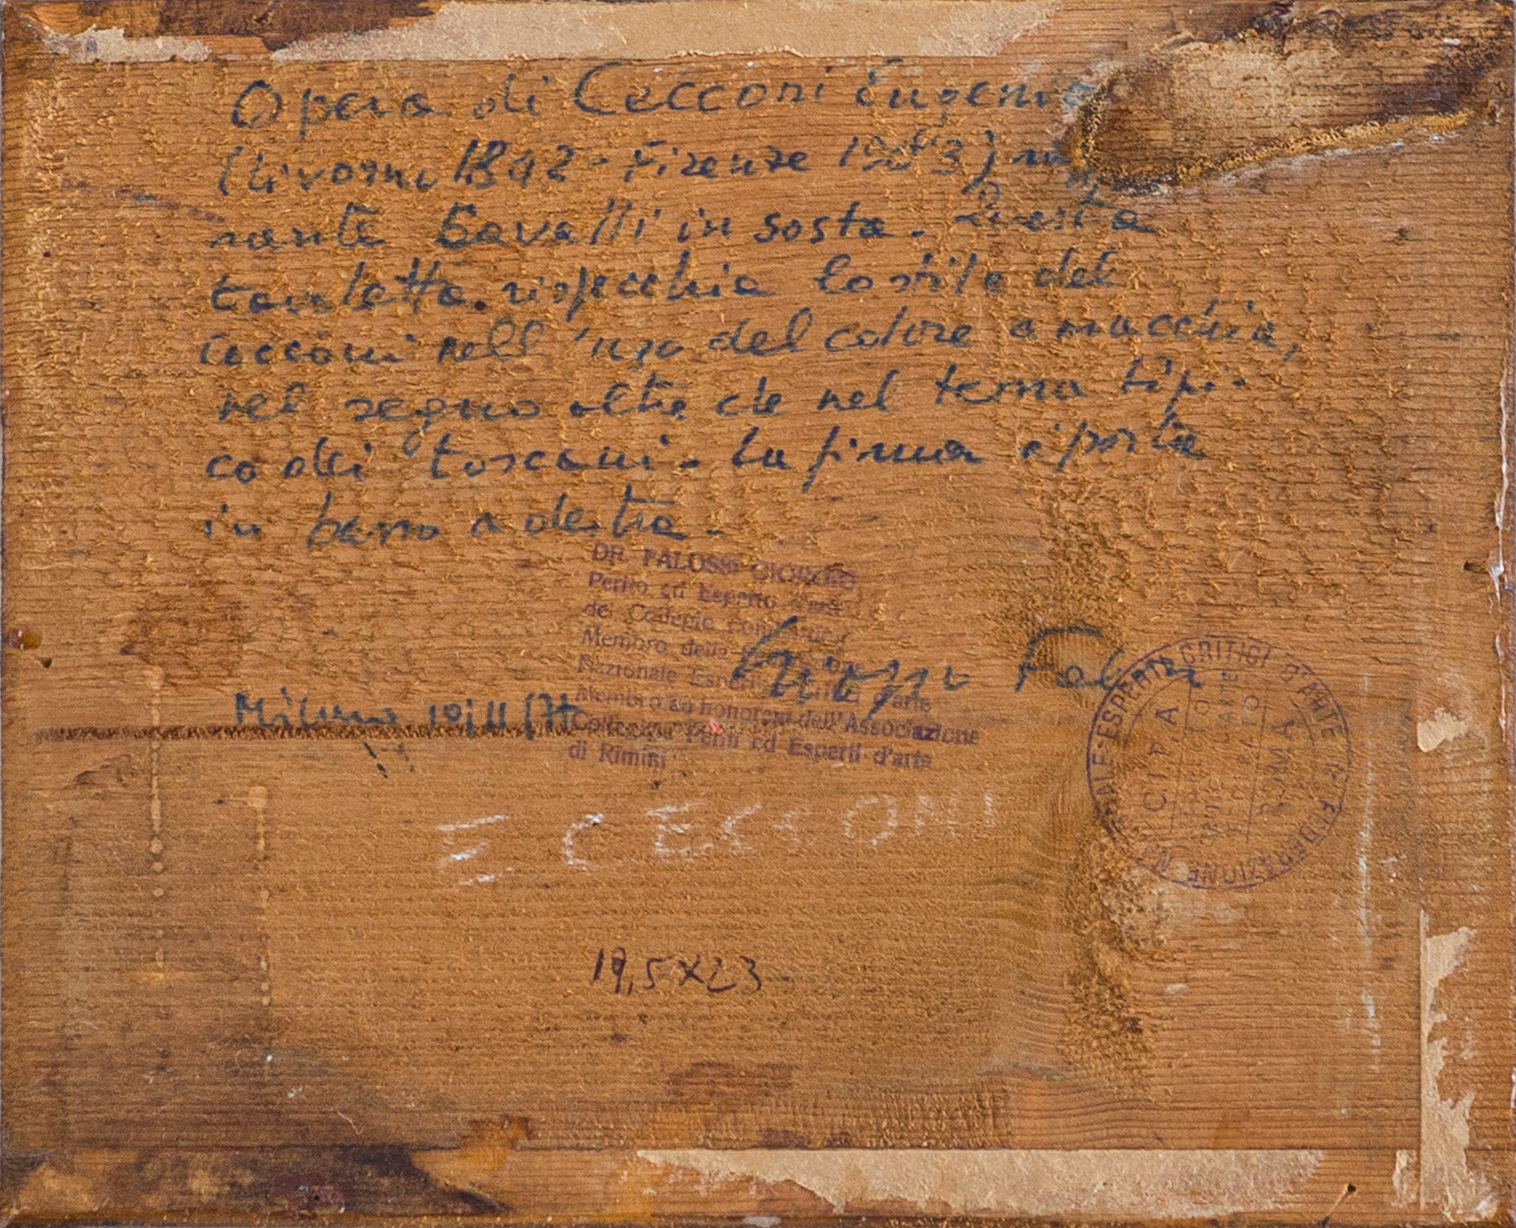 Opera di Cecconi Eugenio
(Livorno 1842 - Firenze 1903)
rante Cavalli in sosta. Questa
tavoletta rispecchia lo stile del
Cecconi nell'uso del colore a macchia,
nel segno oltre che nel tema tipi-
co dei toscani. La firma è posta
in basso a destra.
DR. FALOSSI GIORGIO
Perito ed Esperto d'arte
del Collegio
Membro della
Nazionale Esperti Critici d'arte
Membro ad honorem dell'Associazione
Periti ed Esperti d'arte
di Rimini
Giorgio Falossi
Milano 10/11/
FEDERAZIONE NAZIONALE ESPERTI CRITICI D'ARTE
CIPA
ROMA
E CECCONI
19,5x23